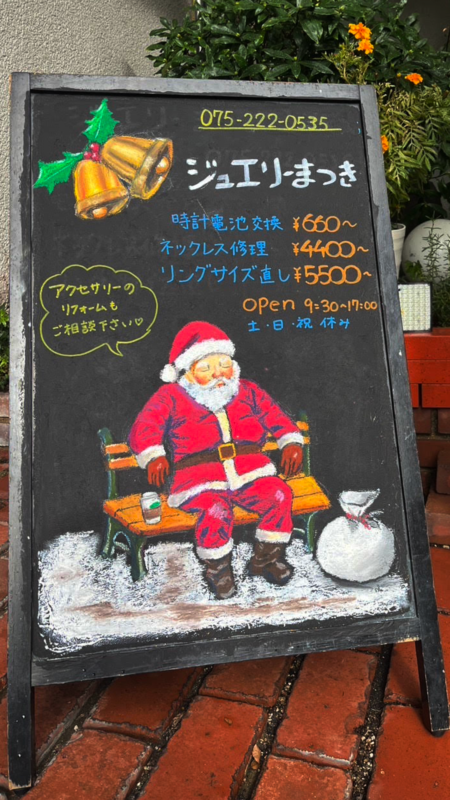 075-222-0535
ジュエリーまつき
時計電池交換 ¥660〜
ネックレス修理 ¥4400〜
リングサイズ直し ¥5500〜
open 9:30〜17:00
土・日・祝 休み
アクセサリーの
リフォームも
ご相談下さい♡